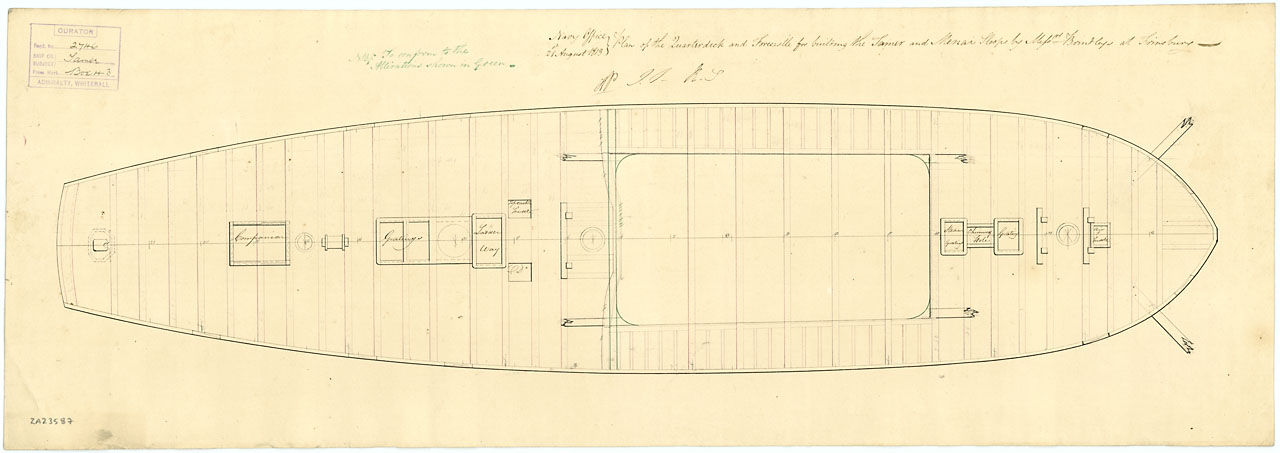 CURATOR
Desk No. 2746
SHIP OR
Tamer
From Work. Box 43
ADMIRALTY, WHITEHALL
NB. To conform to the
Alterations shown in Green
Navy Office
Augsut 1812
Plan of the Quarterdeck and Forecastle for building the Tamer and Menai Sloops by Mess.rs Brindleys at Frinsbury
Companion
Gratings
Ladder
Way
Do
Steam
Grating
Chimney
Hole
Grating
ZA23587